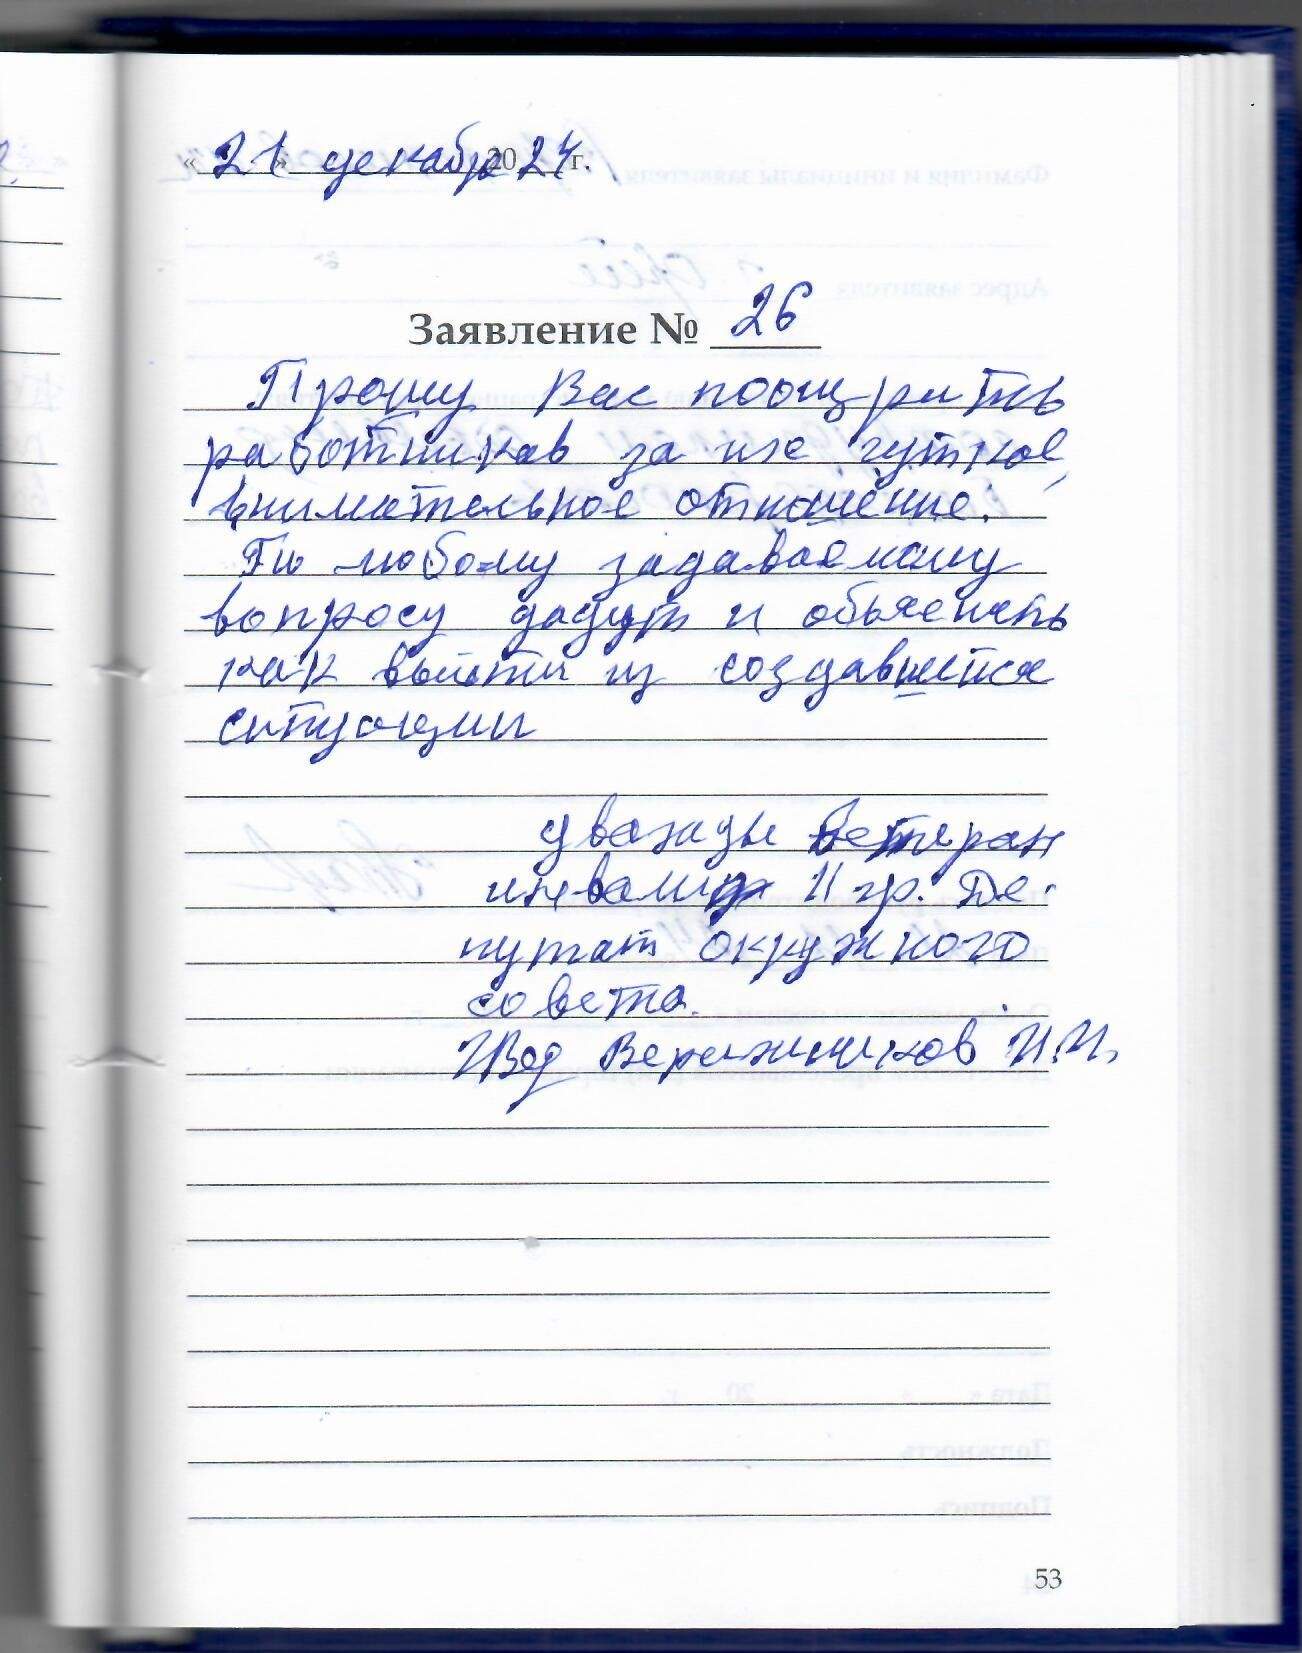 « 21 » декабр 2024 г.
Заявление № 26
Прошу Вас поощрить
работников за их чуткое,
внимательное отношение.
По любому задаваемому
вопросу дадут и объяснять
как выйти из создавшейся
ситуации
дважды ветеран
инвалид II гр. Де-
путат окружного
совета.
Вережников И.И.
53